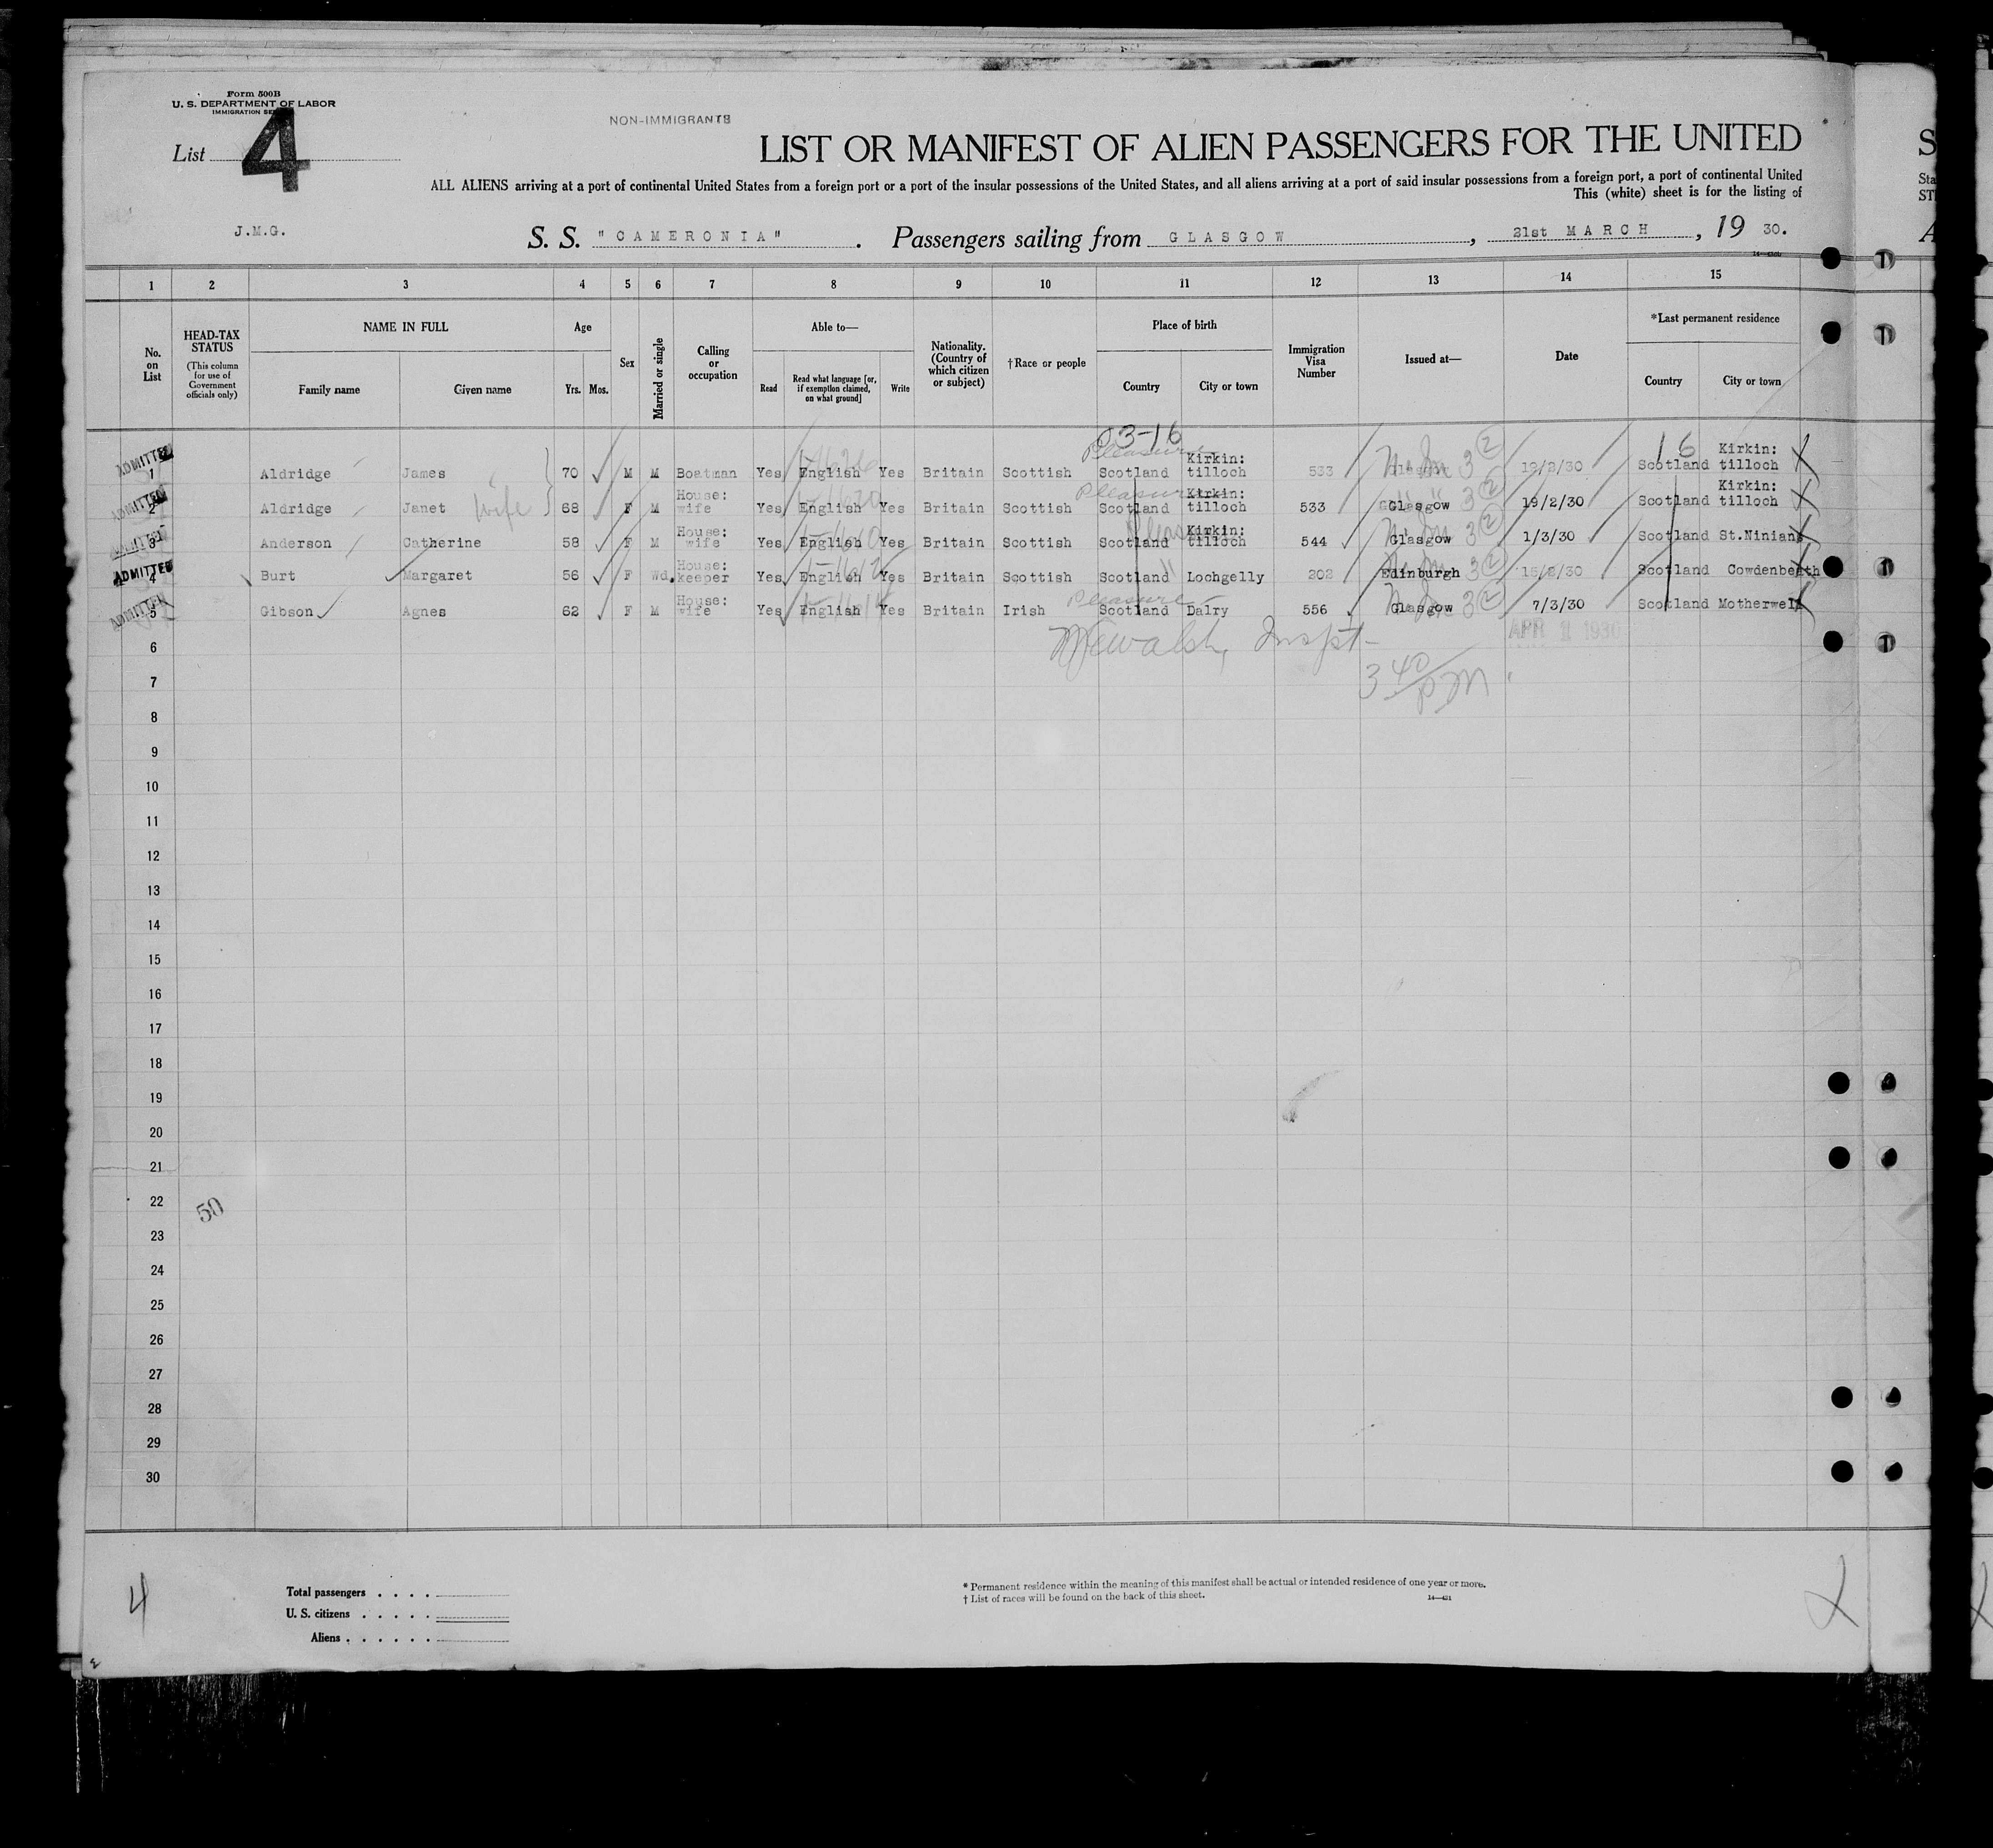 Form 500B
U. S. DEPARTMENT OF LABOR
IMMIGRATION
NON-IMMIGRANTS
List 4
LIST OR MANIFEST OF ALIEN PASSENGERS FOR THE UNITED
ALL ALIENS arriving at a port of continental United States from a foreign port or a port of the insular possessions of the United States, and all aliens arriving at a port of said insular possessions from a foreign port, a port of continental United
This (white) sheet is for the listing of
J.M.G.
S. S. "CAMERONIA" . Passengers sailing from GLASGOW , 21st MARCH , 19 30.
1 2 3 4 5 6 7 8 9 10 11 12 13 14 15
No. on List
HEAD-TAX STATUS (This column for use of Government officials only)
NAME IN FULL
Family name Given name
Age
Yrs. Mos.
Sex
Married or single
Calling or occupation
Able to—
Read Read what language [or, if exemption claimed, on what ground] Write
Nationality. (Country of which citizen or subject)
†Race or people
Place of birth
Country City or town
Immigration Visa Number
Issued at—
Date
*Last permanent residence
Country City or town
03-16
16
ADMITTED 1 Aldridge James 70 M M Boatman Yes English Yes Britain Scottish Pleasure Scotland Kirkin: tilloch 533 Glasgow 3 2 19/2/30 Scotland Kirkin: tilloch
ADMITTED 2 Aldridge Janet wife 68 F M House: wife Yes English Yes Britain Scottish Pleasure Scotland Kirkin: tilloch 533 Glasgow 3 2 19/2/30 Scotland Kirkin: tilloch
ADMITTED 3 Anderson Catherine 58 F M House: wife Yes English Yes Britain Scottish Scotland Kirkin: tilloch 544 Glasgow 3 2 1/3/30 Scotland St.Ninians
ADMITTED 4 Burt Margaret 56 F Wd. House: keeper Yes English Yes Britain Scottish Scotland Lochgelly 202 Edinburgh 3 2 15/2/30 Scotland Cowdenbeath
ADMITTED 5 Gibson Agnes 62 F M House: wife Yes English Yes Britain Irish Pleasure Scotland Dalry 556 Glasgow 3 2 7/3/30 Scotland Motherwell
Inspt-
APR 1 1930
6
3 40 PM
7
8
9
10
11
12
13
14
15
16
17
18
19
20
21
22
50
23
24
25
26
27
28
29
30
4
Total passengers . . . .
U. S. citizens . . . . .
Aliens . . . . . .
* Permanent residence within the meaning of this manifest shall be actual or intended residence of one year or more.
† List of races will be found on the back of this sheet.